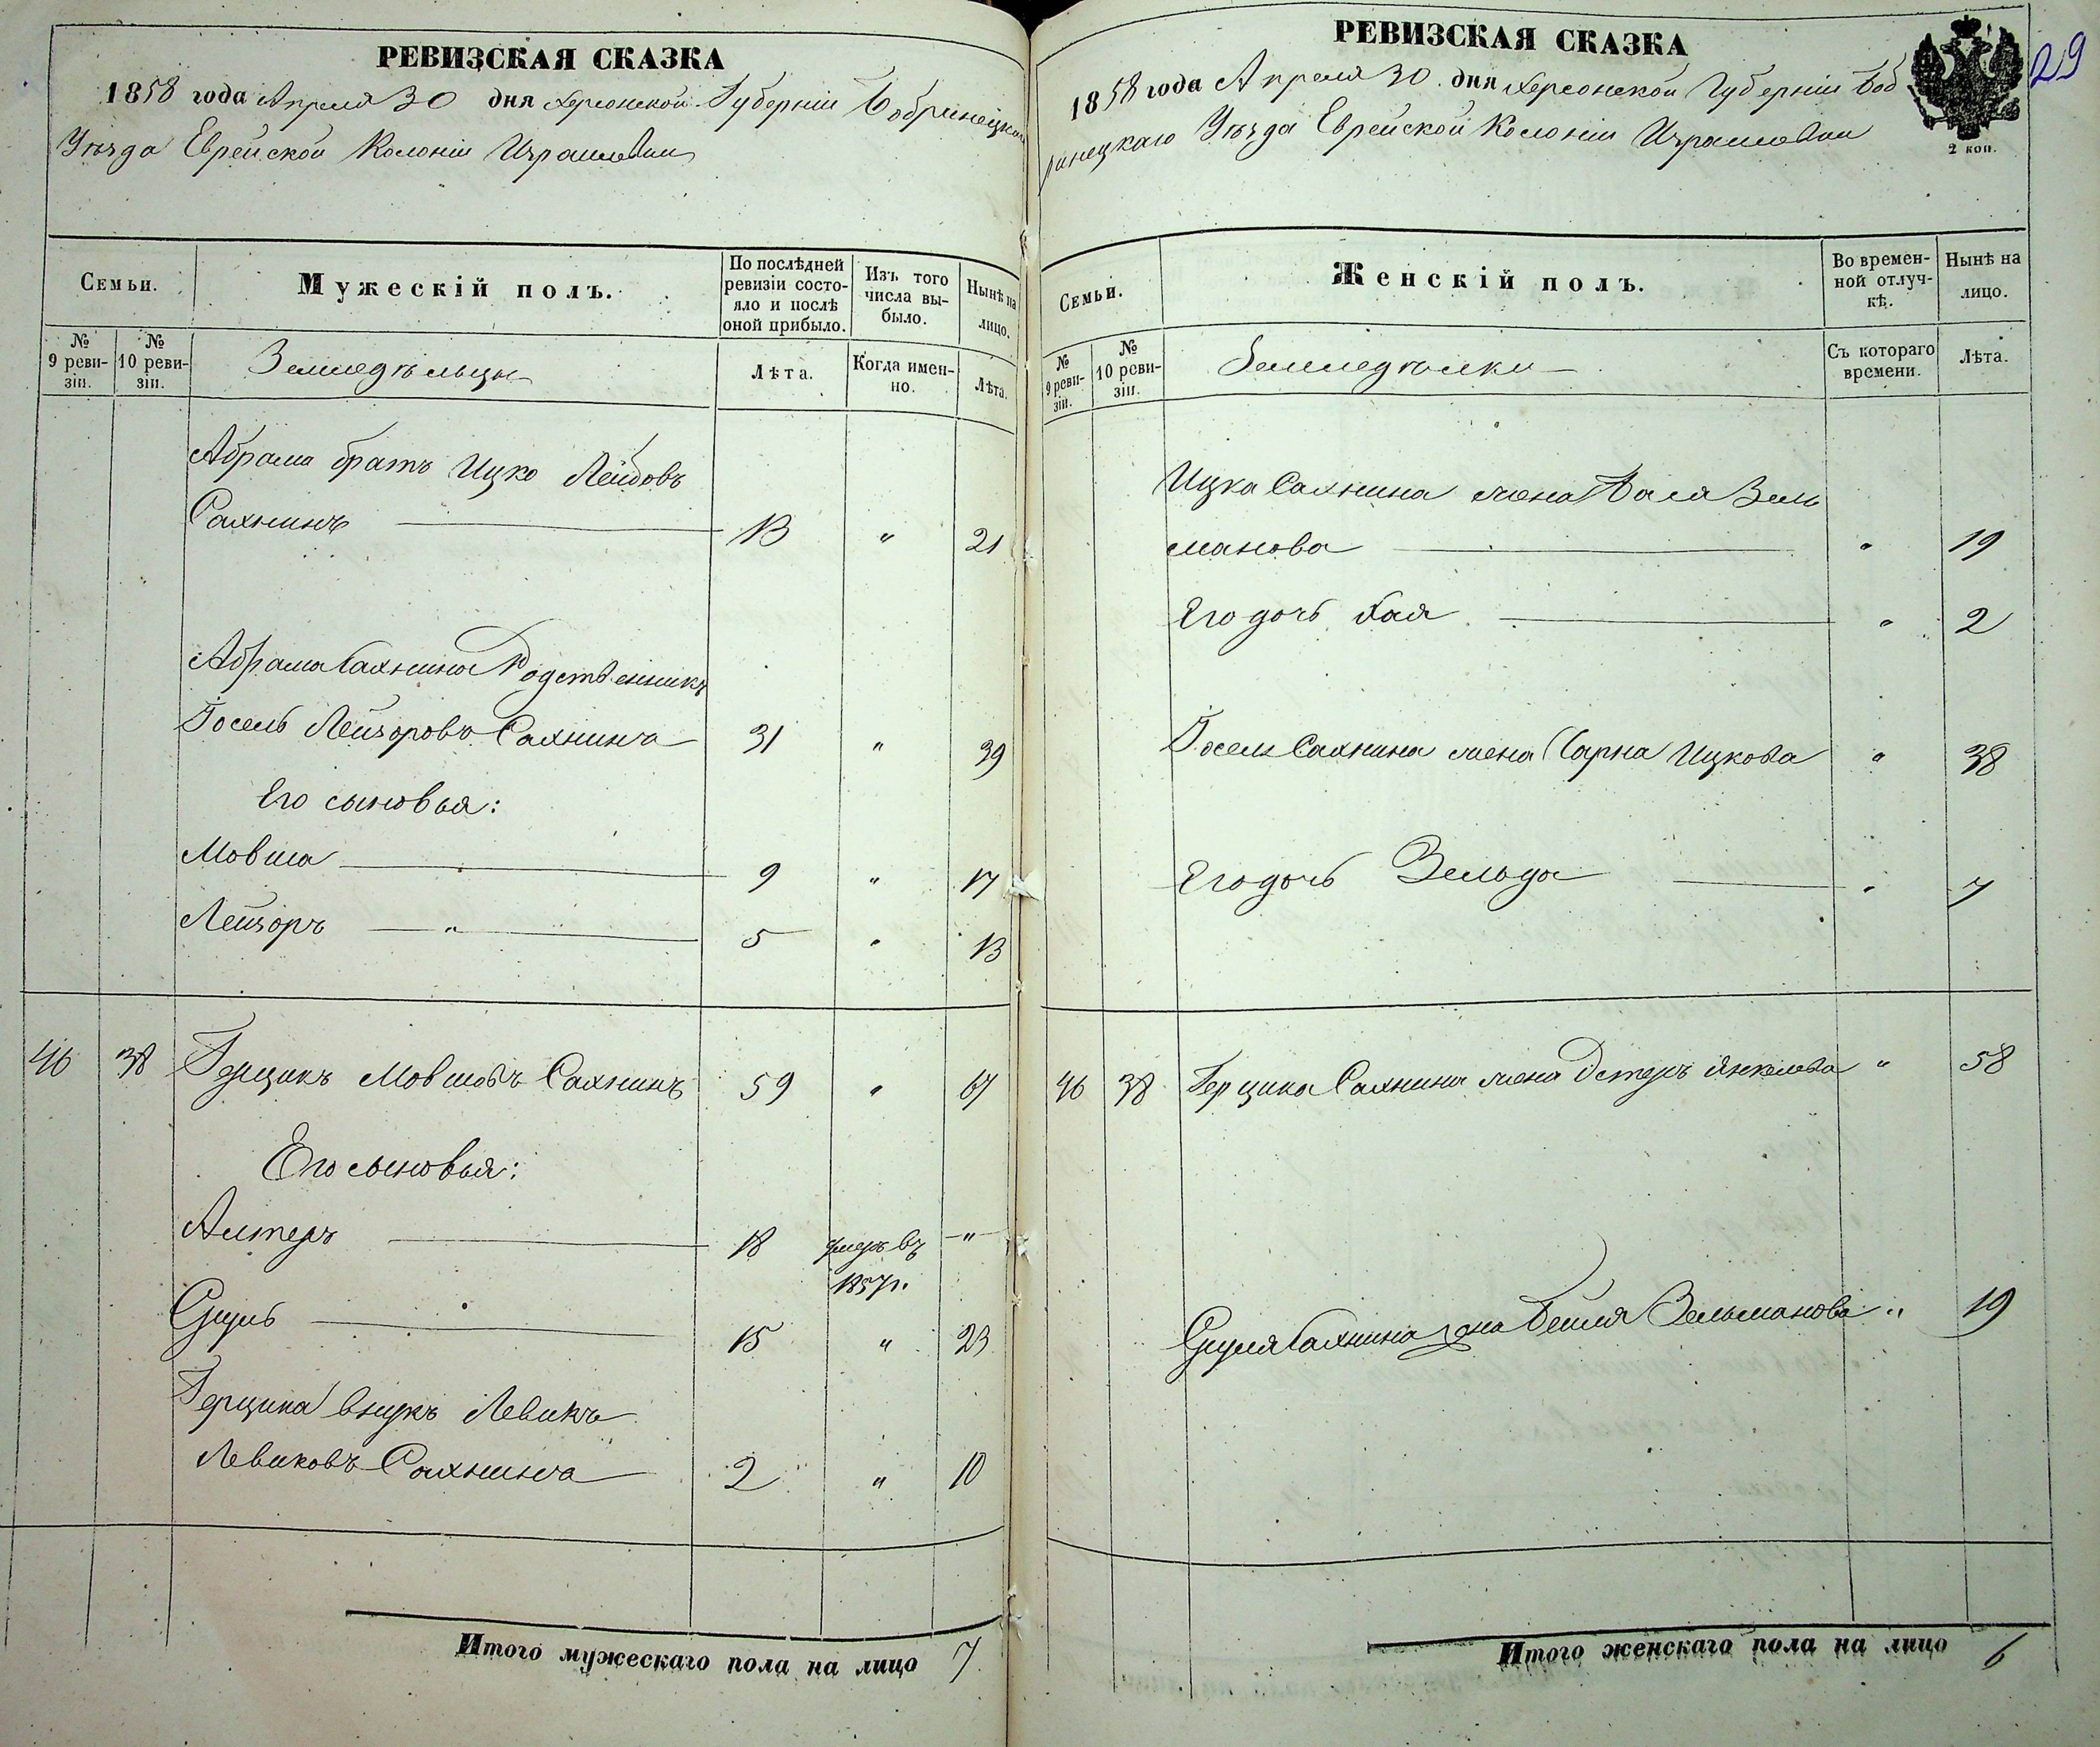 РЕВИЗСКАЯ СКАЗКА
1858 года Апреля 30 дня Херсонской Губерніи Бобринецкаго
Уѣзда Еврейской Колоніи Израилевки
Семьи.
Мужескій полъ.
По послѣдней ревизіи состояло и послѣ оной прибыло.
Изъ того числа выбыло.
Нынѣ на лицо.
№ 9 ревизіи.
№ 10 ревизіи.
Земледѣльцы
Лѣта.
Когда именно.
Лѣта.
Абрама братъ Ицко Лейбовъ
Сахнинъ 13 " 21
Абрама Сахнина Родственникъ
Іосель Лейзоровъ Сахнинъ 31 " 39
Его сыновья:
Мовша 9 " 17
Лейзоръ " 5 " 13
46 38 Герцикъ Мовшовъ Сахнинъ 59 " 67
Его сыновья:
Алтеръ 18 умеръ въ "
1857 г.
Сруль 15 " 23
Герцика внукъ Левикъ
Левиковъ Сахнинъ 2 " 10
Итого мужескаго пола на лицо 7
РЕВИЗСКАЯ СКАЗКА
29
1858 года Апреля 30 дня Херсонской Губерніи Боб
ринецкаго Уѣзда Еврейской Колоніи Израилевки
2 коп.
Семьи.
Женскій полъ.
Во временной отлучкѣ.
Нынѣ на лицо.
№ 9 ревизіи.
№ 10 ревизіи.
Земледѣлки
Съ котораго времени.
Лѣта.
Ицка Сахнина жена Хая Зель
манова " 19
Его дочь Хая " 2
Іоселя Сахнина жена Сарна Ицкова " 38
Его дочь Зельда " 7
46 38 Герцика Сахнина жена Эстеръ Янкелева " 58
Сруля Сахнина жена Бейля Зельманова " 19
Итого женскаго пола на лицо 6